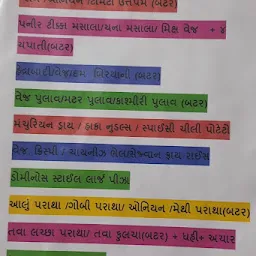 ઓનિયન /ટામેટા ઉત્તપમ (બટર)
પનીર ટીક્કા મસાલા/ચના મસાલા/ મિક્ષ વેજ + ૪
ચપાતી(બટર)
બિરયાની (બટર)
વેજ પુલાવ/મટર પુલાવ/કાશ્મીરી પુલાવ (બટર)
મંચુરિયન ડ્રાય / હાકા નુડલ્સ / સ્પાઈસી ચીલી પોટેટો
વેજ ક્રિસ્પી / ચાઈનીઝ ભેલ/સેઝવાન ફ્રાય રાઈસ
ડોમીનોસ સ્ટાઈલ લાર્જ પીઝા
આલું પરાથા /ગોબી પરાથા/ ઓનિયન /મેથી પરાથા(બટર)
તવા લચ્છા પરાથા/ તવા કુલચા(બટર) + દહીં+ અચાર